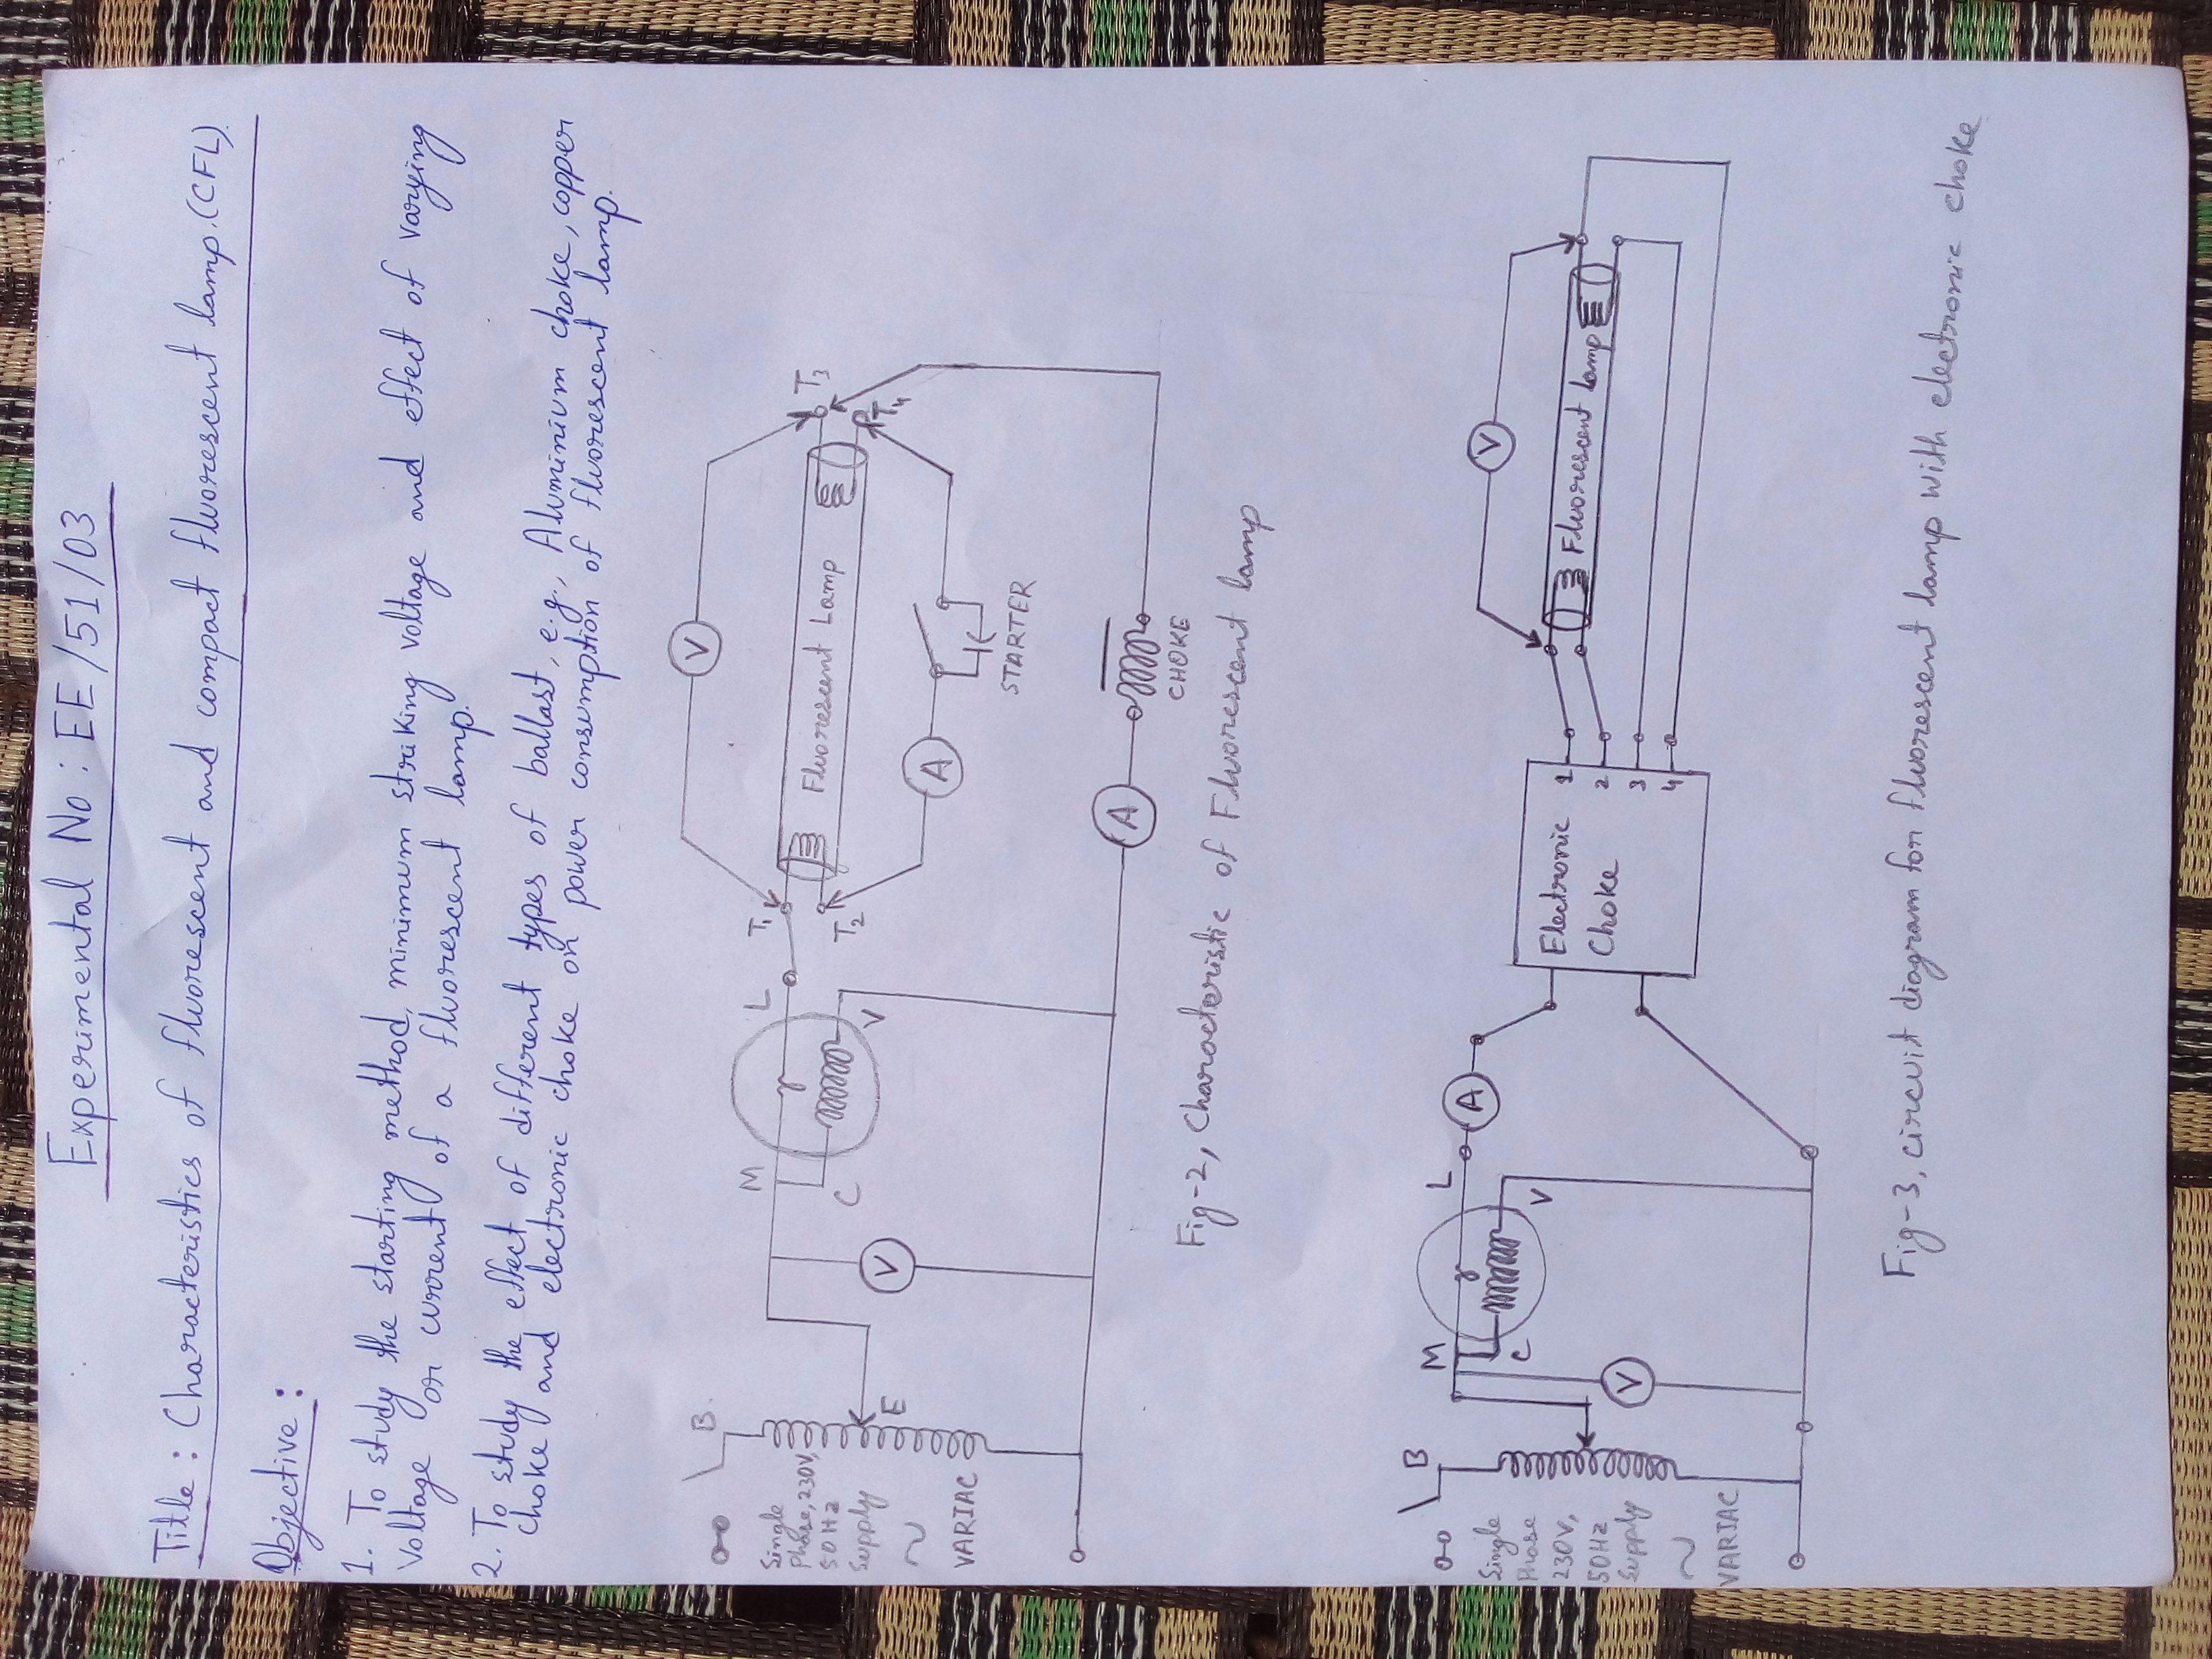 Experimental No : EE/51/03
Title : Characteristics of fluorescent and compact fluorescent lamp.(CFL).
Objective :
1. To study the starting method, minimum striking voltage and effect of varying
voltage or current of a fluorescent lamp.
2. To study the effect of different types of ballast, e.g., Aluminium choke, copper
choke and electronic choke on power consumption of fluorescent lamp.
B.
Single
Phase, 230V,
50 Hz
Supply
~
VARIAC
E
V
M
L
C
V
T1
T2
V
Fluorescent Lamp
T3
T4
A
STARTER
A
CHOKE
Fig-2, Characteristic of Fluorescent lamp
B
Single
Phase
230V,
50Hz
Supply
~
VARIAC
V
M
L
C
V
A
Electronic
Choke
1
2
3
4
V
Fluorescent Lamp
Fig-3, circuit diagram for fluorescent lamp with electronic choke